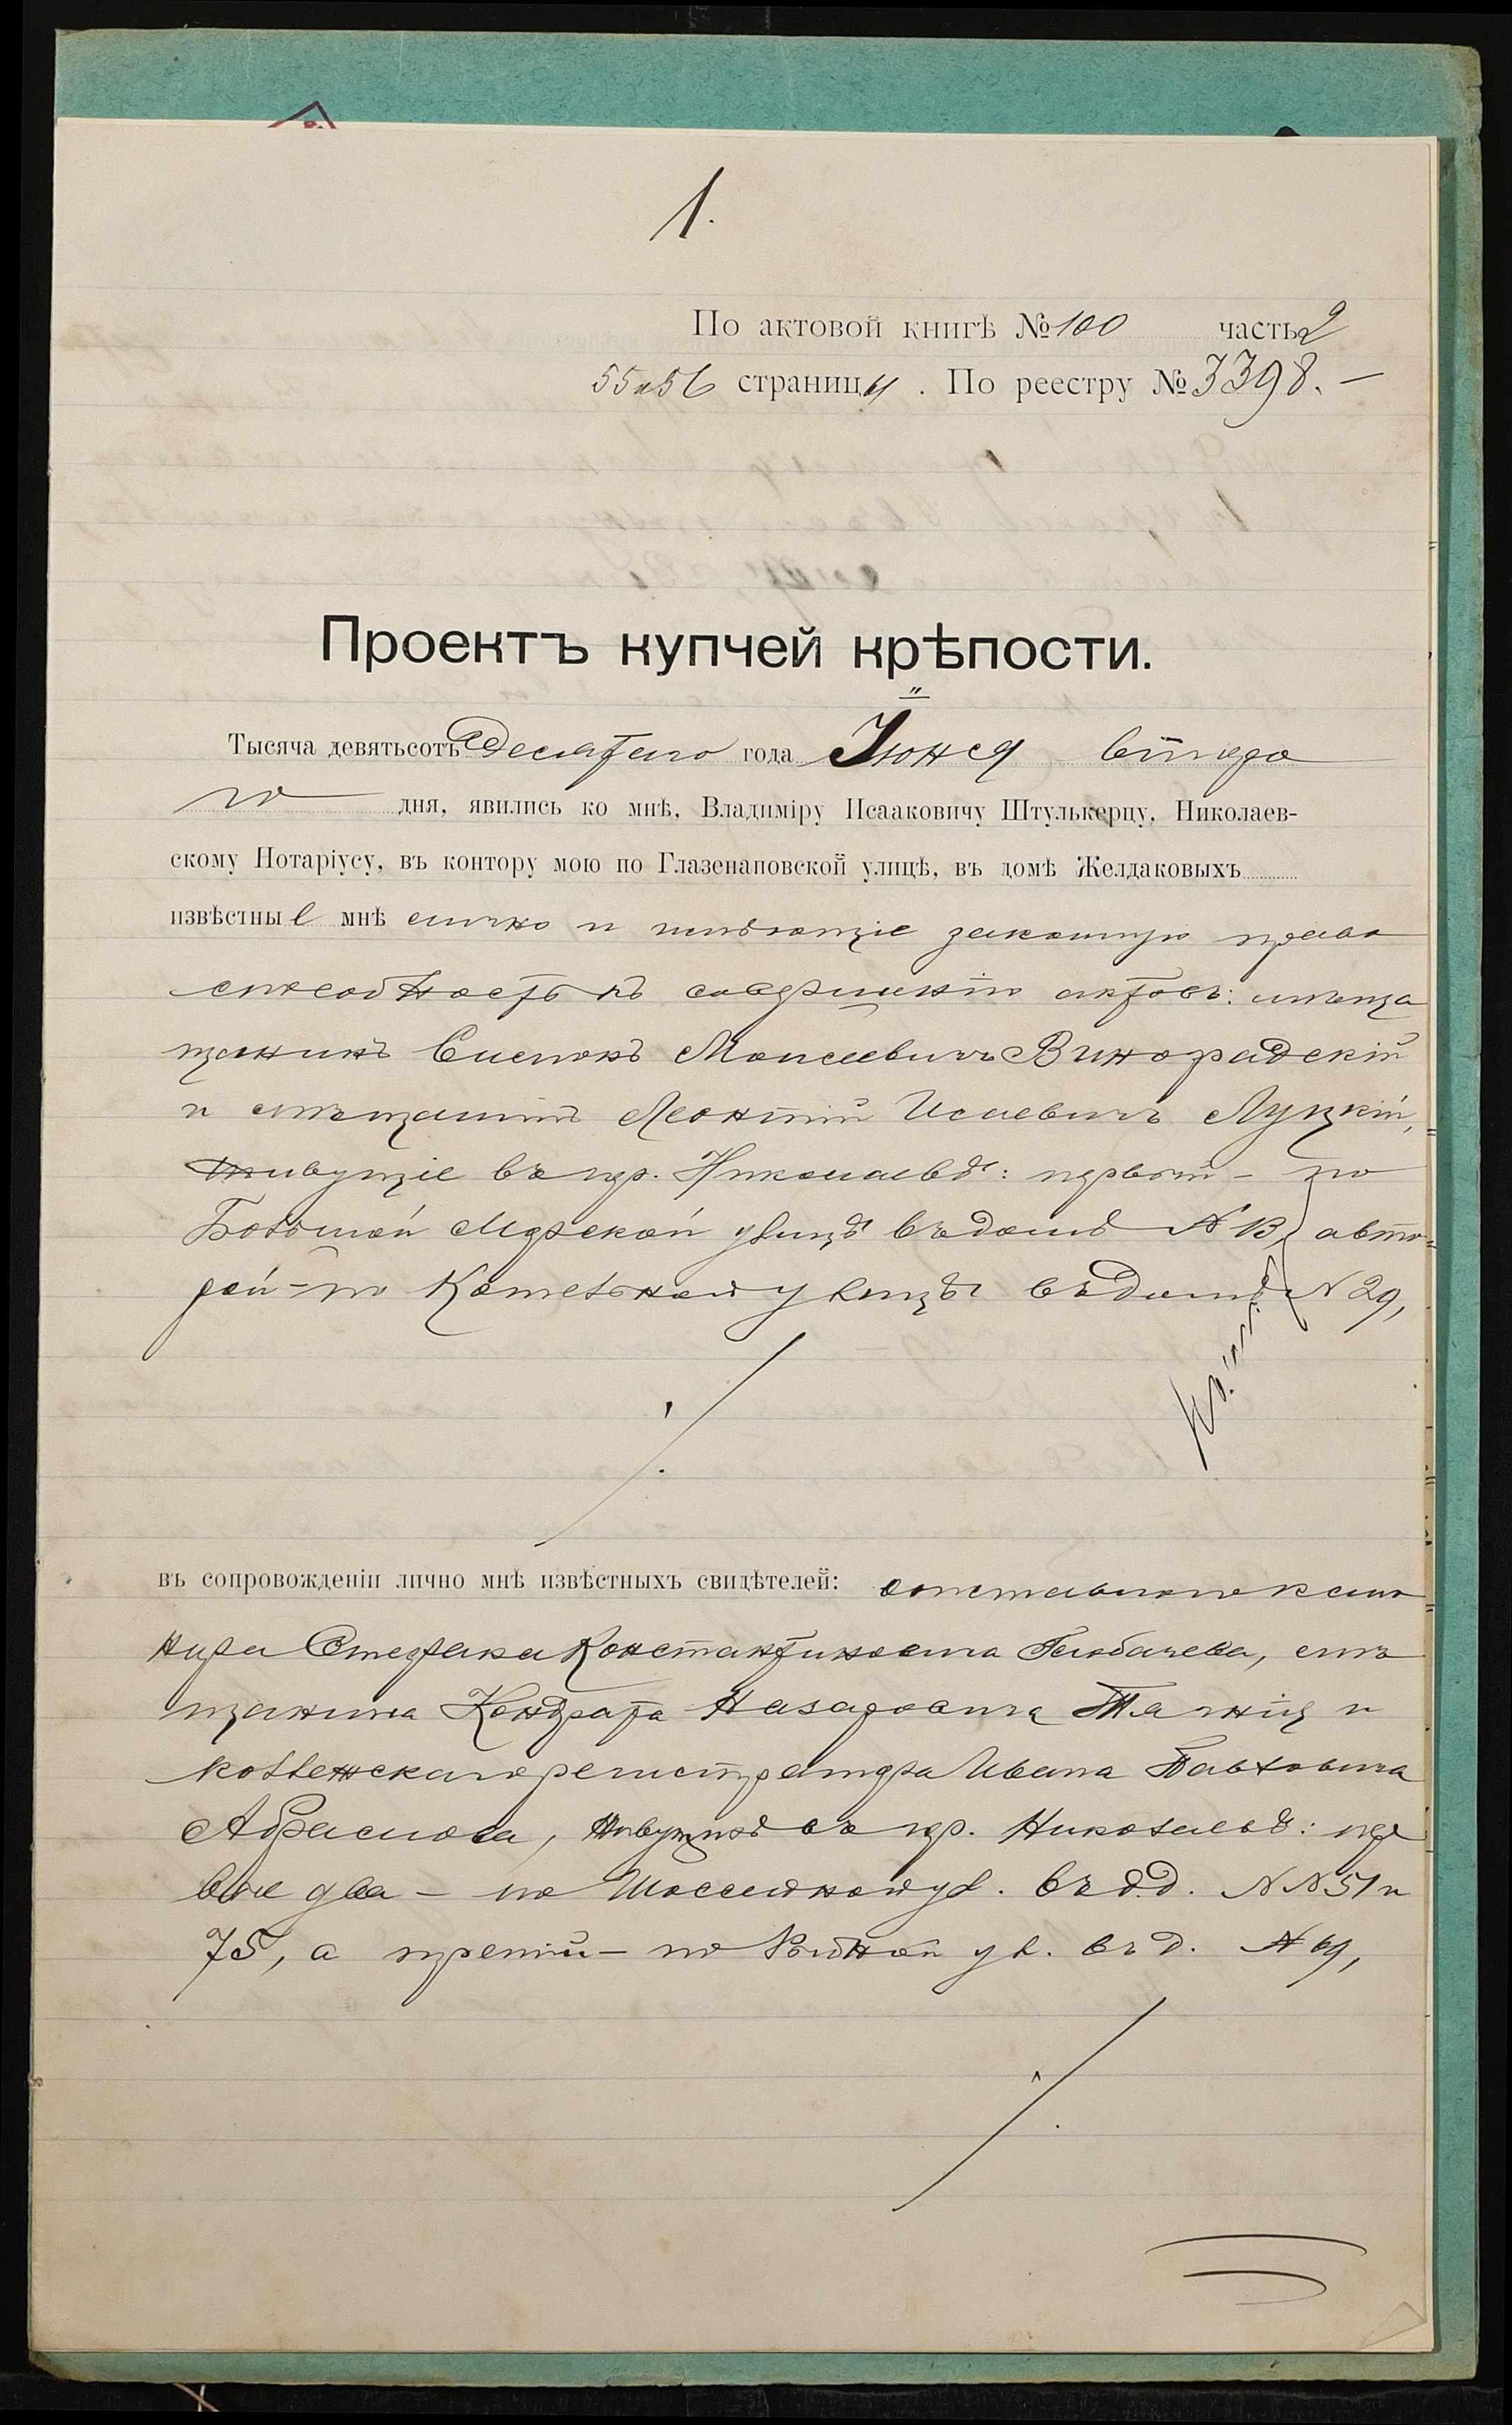 1.
По актовой книгѣ № 100 часть 2
55 и 56 страницы . По реестру № 3398. —
Проектъ купчей крѣпости.
Тысяча девятьсотъ десятаго года Іюня второ
го дня, явились ко мнѣ, Владиміру Исааковичу Штулькерцу, Николаев-
скому Нотаріусу, въ контору мою по Глазенаповской улицѣ, въ домѣ Желдаковыхъ
извѣстные мнѣ лично и имѣющіе законную право
способность къ совершенію актовъ:
щанинъ Моисеевичъ Виноградскій
и мѣщанинъ Леонтій Исаевичъ Луцкій,
живущіе въ гор. Николаевѣ: первый - по
Большой Морской улицѣ въ домѣ № 13, а вто-
рой - по Котельной улицѣ въ домѣ № 29,
въ сопровожденіи лично мнѣ извѣстныхъ свидѣтелей: отставного кано
нира Стефана Константиновича Голобачева, мѣ
щанина Кондрата Назаровича и
коллежскаго регистратора Ивана Павловича
Абрамова, живущихъ въ гор. Николаевѣ: пер
вые два - по ул. въ д.д. № № 51 и
75, а третій - по Рыбной ул. въ д. № 69,